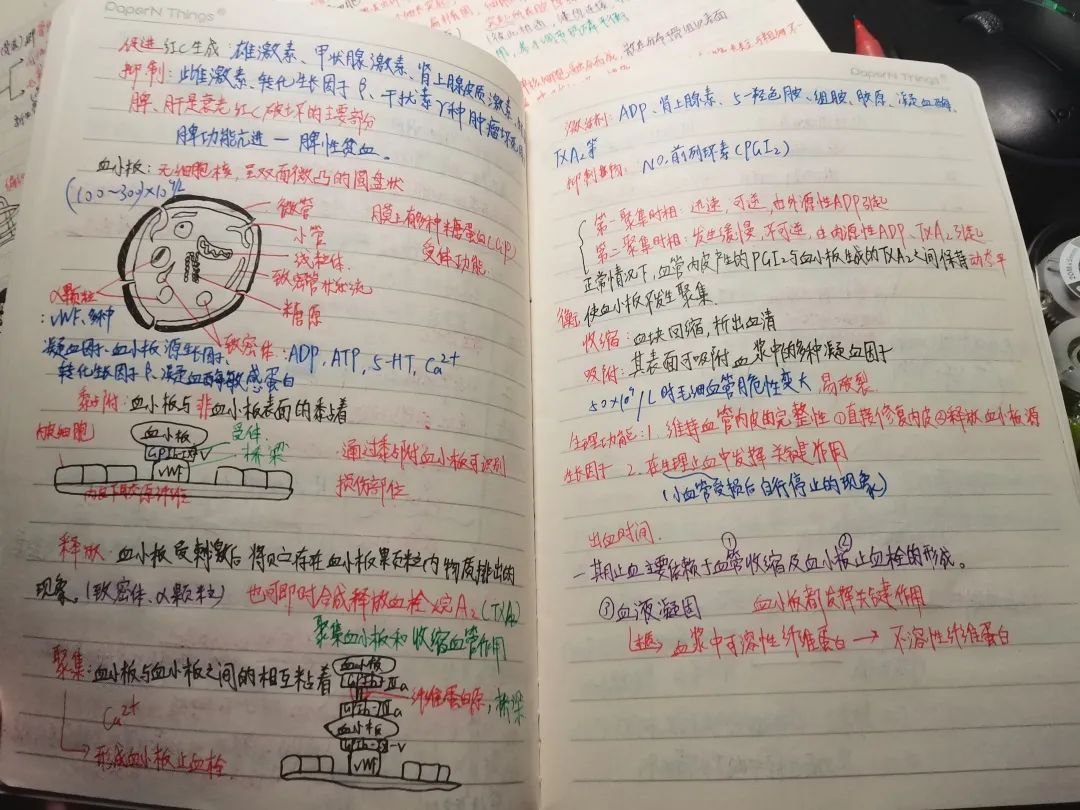 DaperN Things
促进红C生成：雄激素、甲状腺激素、肾上腺皮质激素、
抑制：雌激素、转化生长因子β、干扰素γ种肿瘤坏死
脾、肝是衰老红C破坏的主要部分
脾功能亢进—脾性贫血。
血小板：无细胞核，呈双面微凸的圆盘状
(100～300)×10⁹/L
微管
小管
线粒体
致密管状系统
糖原
膜上有多种糖蛋白(GP)
受体功能.
α颗粒
：vWF、多种
致密体：ADP、ATP、5-HT、Ca²⁺
凝血因子、血小板源生长因子、
转化生长因子β、凝血酶敏感蛋白
黏附：血小板与非血小板表面的黏着
内皮细胞
血小板
受体
GPIb-IX-V
桥梁
vWF
通过黏附血小板可识别
损伤部位.
释放：血小板受刺激后将贮存在血小板颗粒内物质排出的
现象。(致密体、α颗粒)
也可即时合成释放血栓烷A₂(TXA₂)
聚集血小板和收缩血管作用
聚集：血小板与血小板之间的相互黏着
血小板
纤维蛋白原，桥梁
Ca²⁺
血小板
形成血小板止血栓.
vWF
DaperN Things
激活剂：ADP、肾上腺素、5-羟色胺、组胺、胶原、凝血酶、
TXA₂等
抑制剂：NO、前列环素(PGI₂)
第一聚集时相：迅速，可逆，由外源性ADP引起
第二聚集时相：发生缓慢，不可逆，由内源性ADP、TXA₂引起
正常情况下，血管内皮产生的PGI₂与血小板生成的TXA₂之间保持动态平
衡，使血小板不发生聚集.
收缩：血块回缩，析出血清
吸附：其表面可吸附血浆中的多种凝血因子
50×10⁹/L时毛细血管脆性变大 易破裂
生理功能：1.维持血管内皮的完整性①直接修复内皮②释放血小板源
生长因子 2.在生理止血中发挥关键作用
(小血管受损后自行停止的现象)
出血时间.
① ②
一期止血主要依赖于血管收缩及血小板止血栓的形成。
③血液凝固 血小板都发挥关键作用
血浆中可溶性纤维蛋白 → 不溶性纤维蛋白